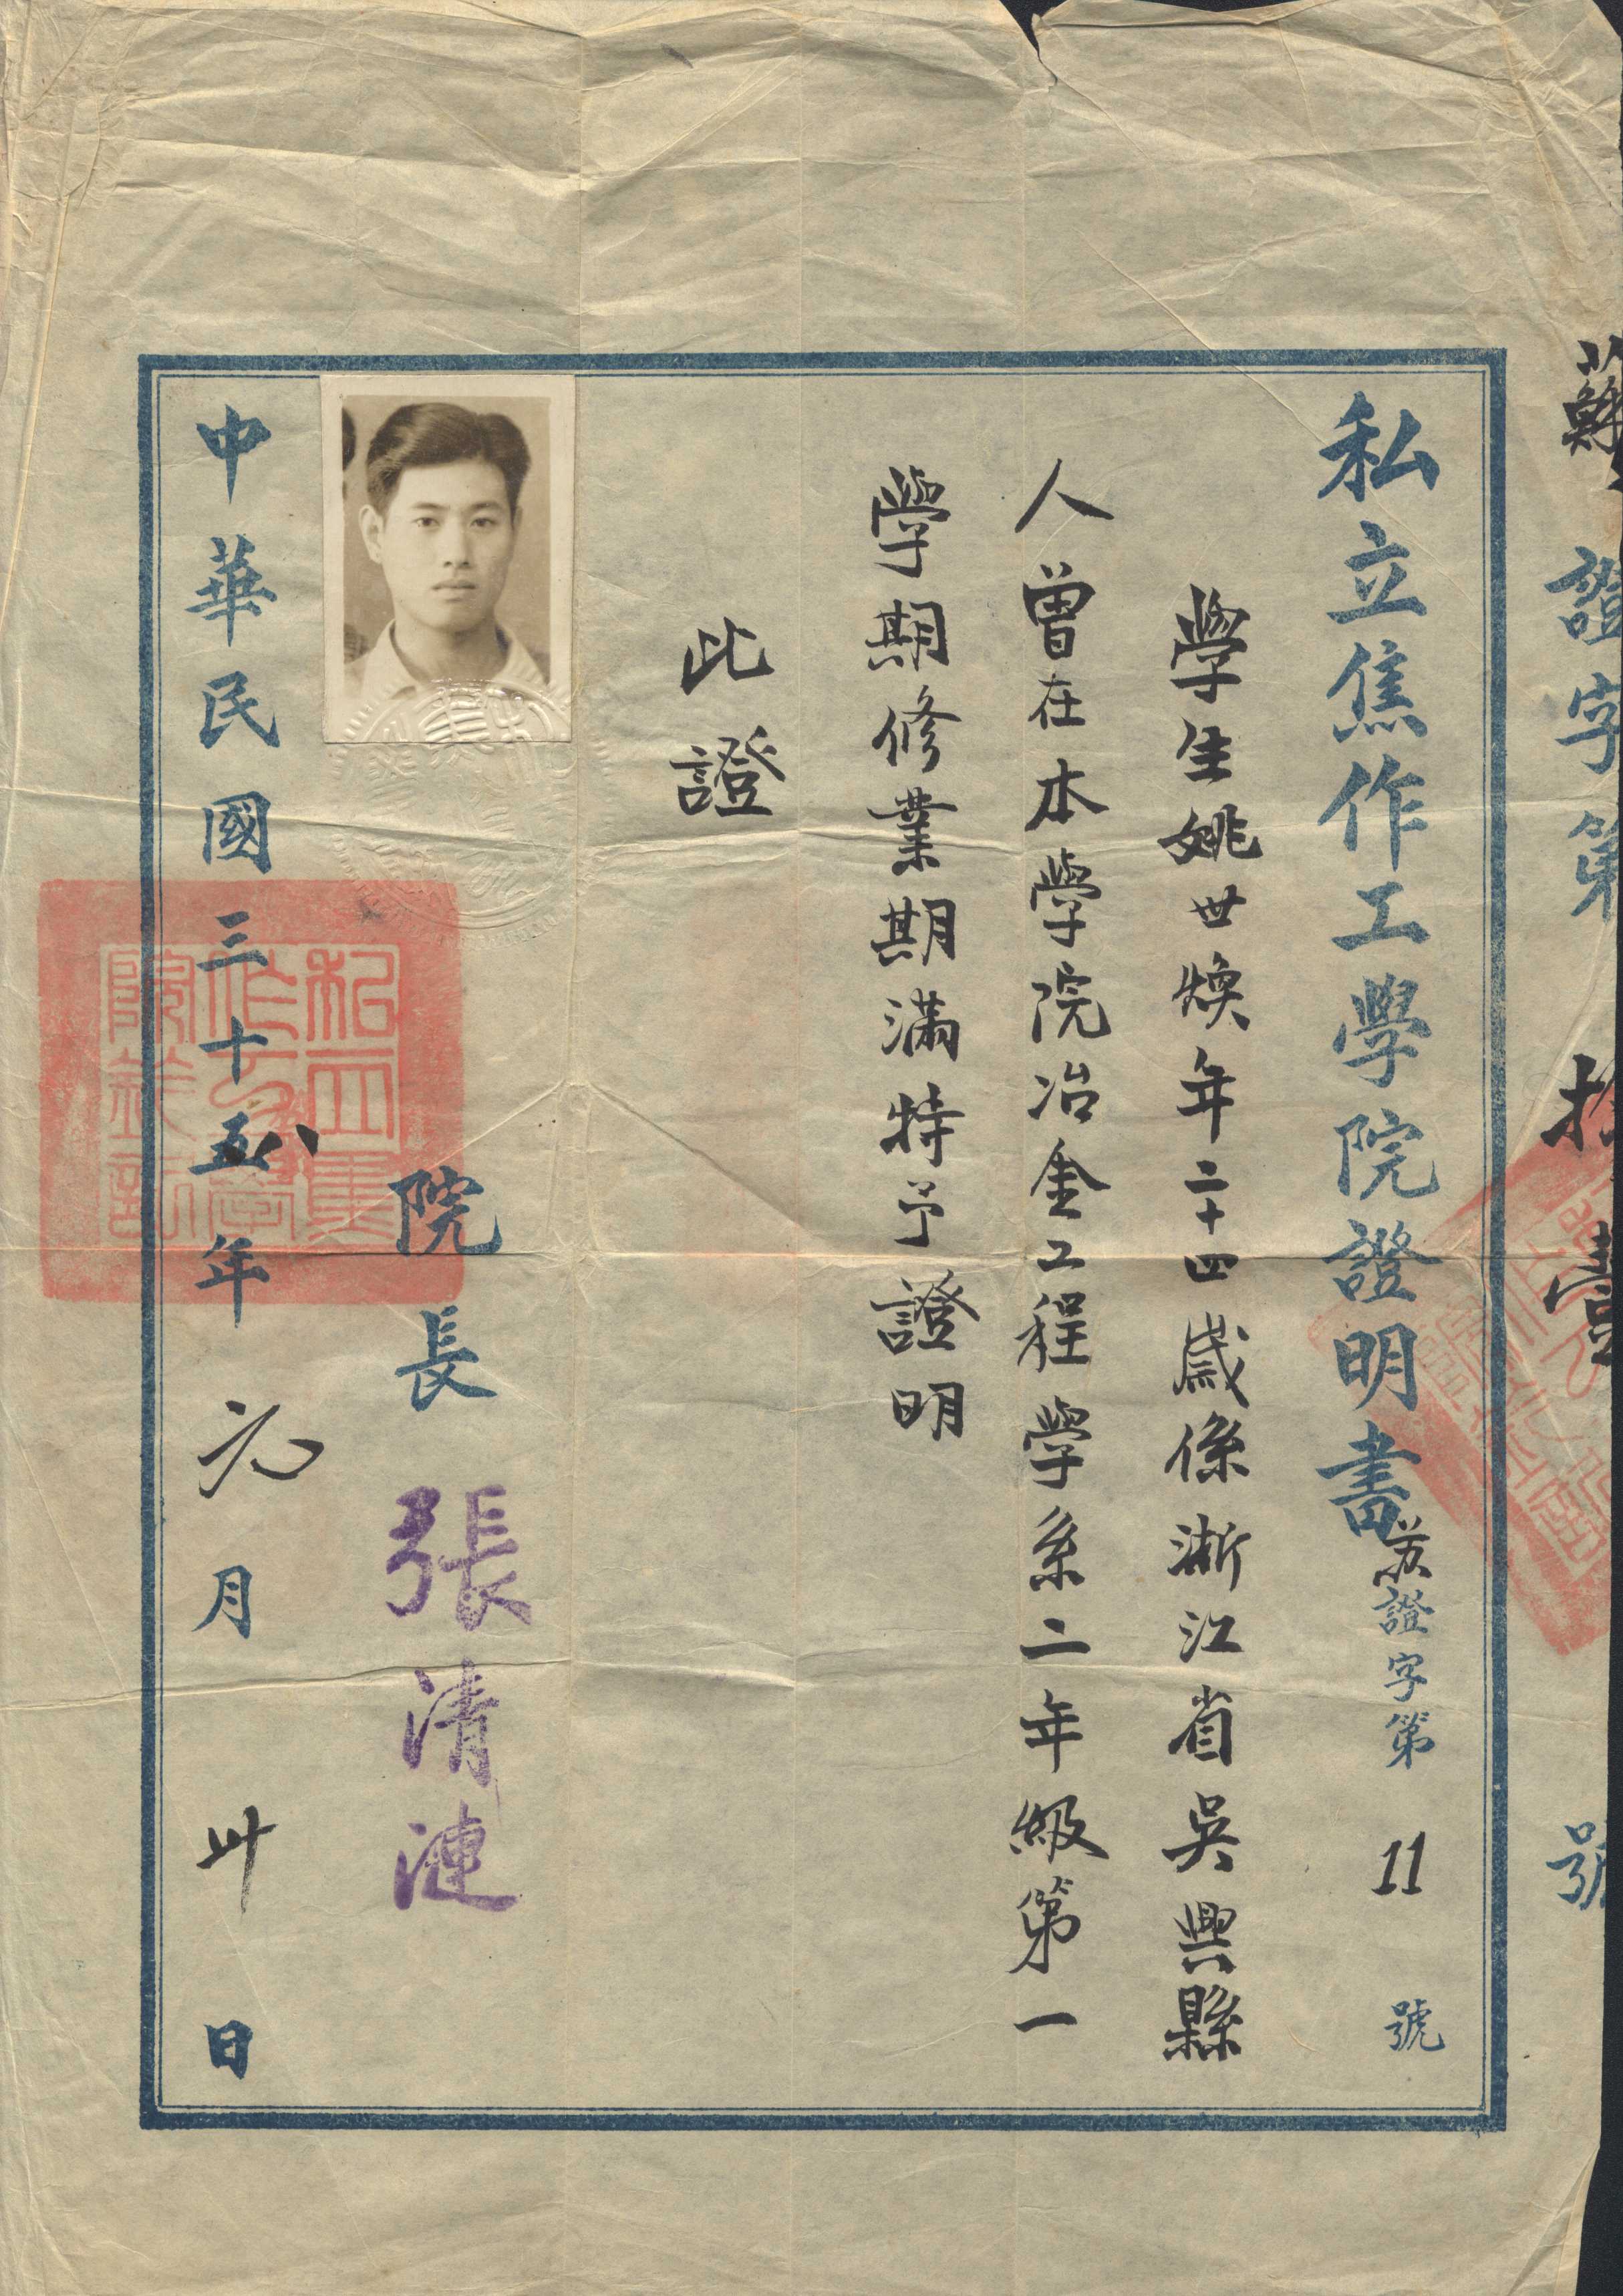 證字第 號
私立焦作工學院證明書
苏證字第 11 號
學生姚世煥年二十四歲係浙江省吳興縣
人曾在本學院冶金工程學系二年級第一
學期修業期滿特予證明
此證
院長 張清漣
中華民國三十八年元月卅日